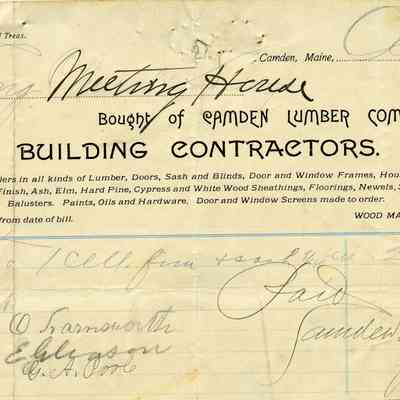 Treas.
Camden, Maine,
Meeting House
Bought of CAMDEN LUMBER COM
BUILDING CONTRACTORS.
lers in all kinds of Lumber, Doors, Sash and Blinds, Door and Window Frames, Hou
Finish, Ash, Elm, Hard Pine, Cypress and White Wood Sheathings, Floorings, Newels, S
Balusters. Paints, Oils and Hardware. Door and Window Screens made to order.
from date of bill. WOOD MA
Paid
O Farnsworth Camden
E Gleason
G. A. Poole